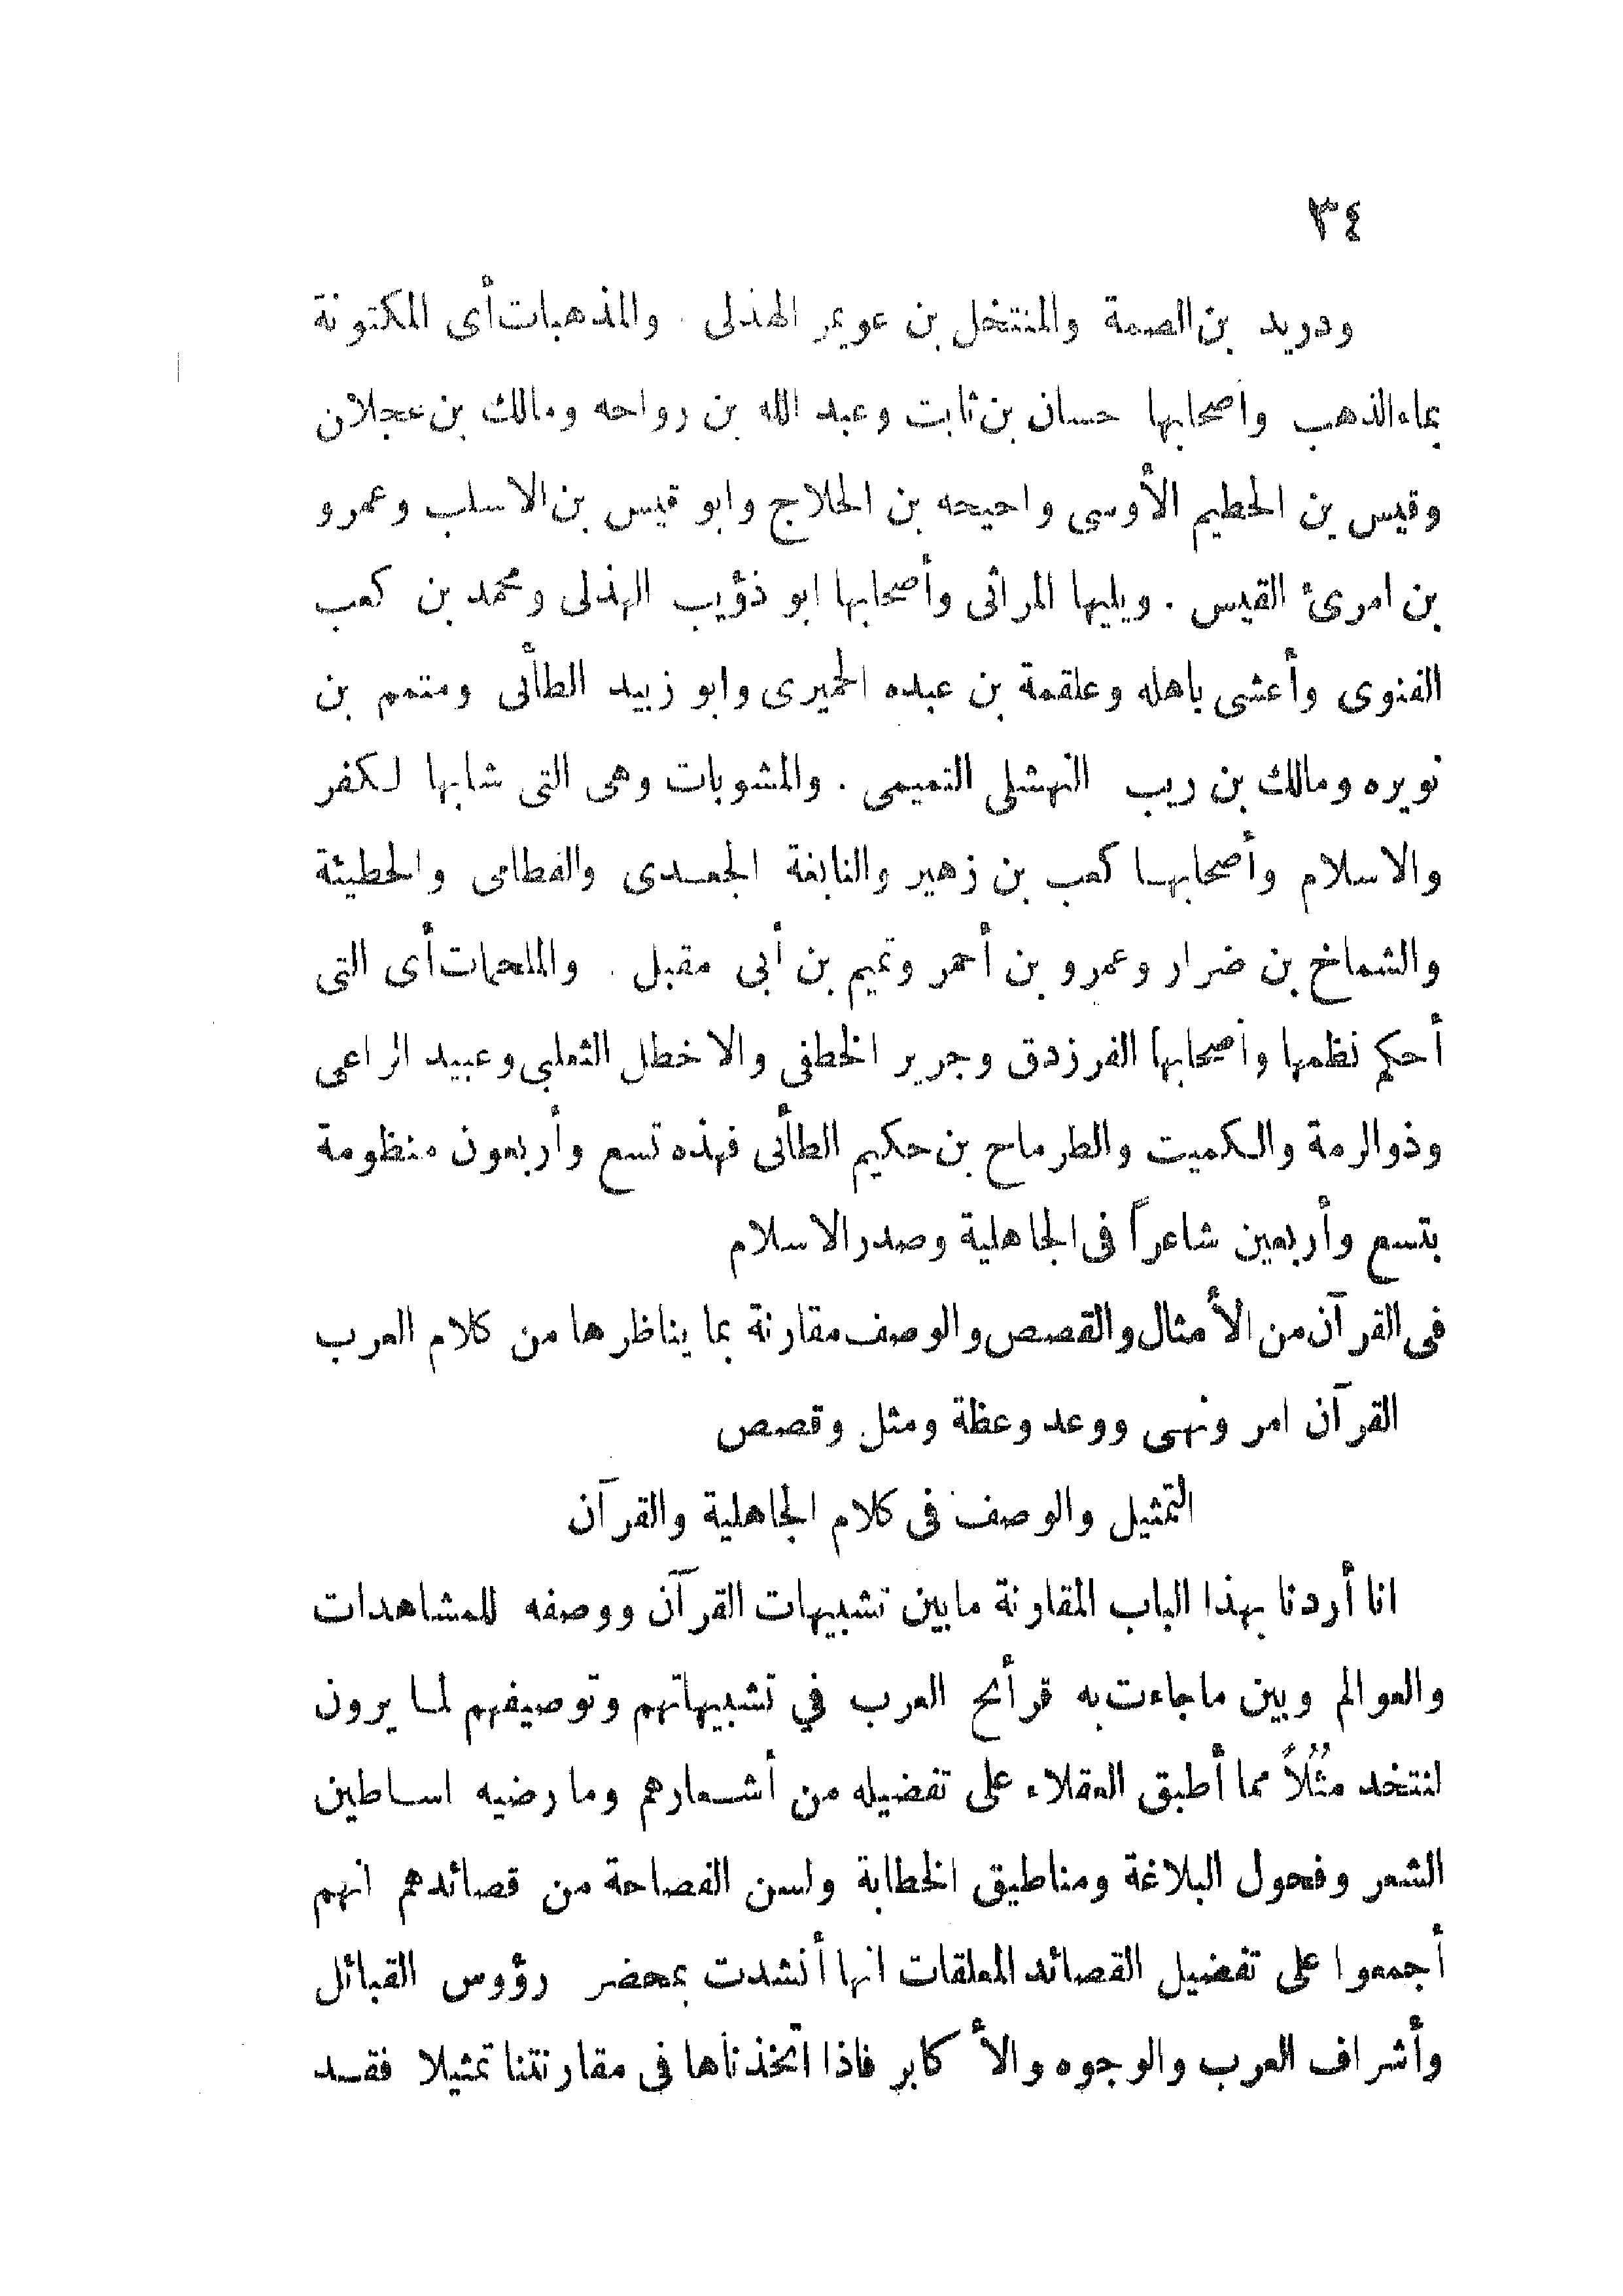 ٣٤
ودريد بن الصمة والمنتخل بن عويمر الهذلى . والمذهبات أى المكتونة
بماء الذهب وأصحابها حسان بن ثابت وعبد الله بن رواحه ومالك بن عجلان
وقيس بن الحطيم الأوسى واحيحه بن الحلاج وابو قيس بن الاسلب وعمرو
بن امرئ القيس . ويليها المراثى وأصحابها ابو ذؤيب الهذلى ومحمد بن كعب
الفنوى وأعشى باهله وعلقمة بن عبده الحميرى وابو زبيد الطأئى ومتمم بن
نويره ومالك بن ريب النهشلى التميمى . والمشوبات وهى التى شابها لكفر
والاسلام وأصحابها كعب بن زهير والنابغة الجعدى والقطامى والحطيئة
والشماخ بن ضرار وعمرو بن أحمر وتميم بن أبى مقبل . والملحمات أى التى
أحكم نظمها وأصحابها الفرزدق وجرير الخطفى والاخطل الثعلبى وعبيد الراعى
وذو الرمة والكميت والطرماح بن حكيم الطأئى فهذه تسع وأربعون منظومة
بتسع وأربعين شاعراً فى الجاهلية وصدر الاسلام
فى القرآن من الأمثال والقصص والوصف مقارنة بما يناظرها من كلام العرب
القرآن امر ونهى ووعد وعظة ومثل وقصص
التمثيل والوصف فى كلام الجاهلية والقرآن
انا أردنا بهذا الباب المقارنة مابين تشبيهات القرآن ووصفه للمشاهدات
والعوالم وبين ماجاءت به قرأئح العرب في تشبيهاتهم وتوصيفهم لما يرون
لنتخد مثُلاً مما أطبق العقلاء على تفضيله من أشعارهم وما رضيه اساطين
الشعر وفحول البلاغة ومناطيق الخطابة ولسن الفصاحة من قصائدهم انهم
أجمعوا على تفضيل القصائد المعلقات انها أنشدت بمحضر رؤوس القبائل
وأشراف العرب والوجوه والأكابر فاذا اتخذناها فى مقارنتنا تمثيلا فقد